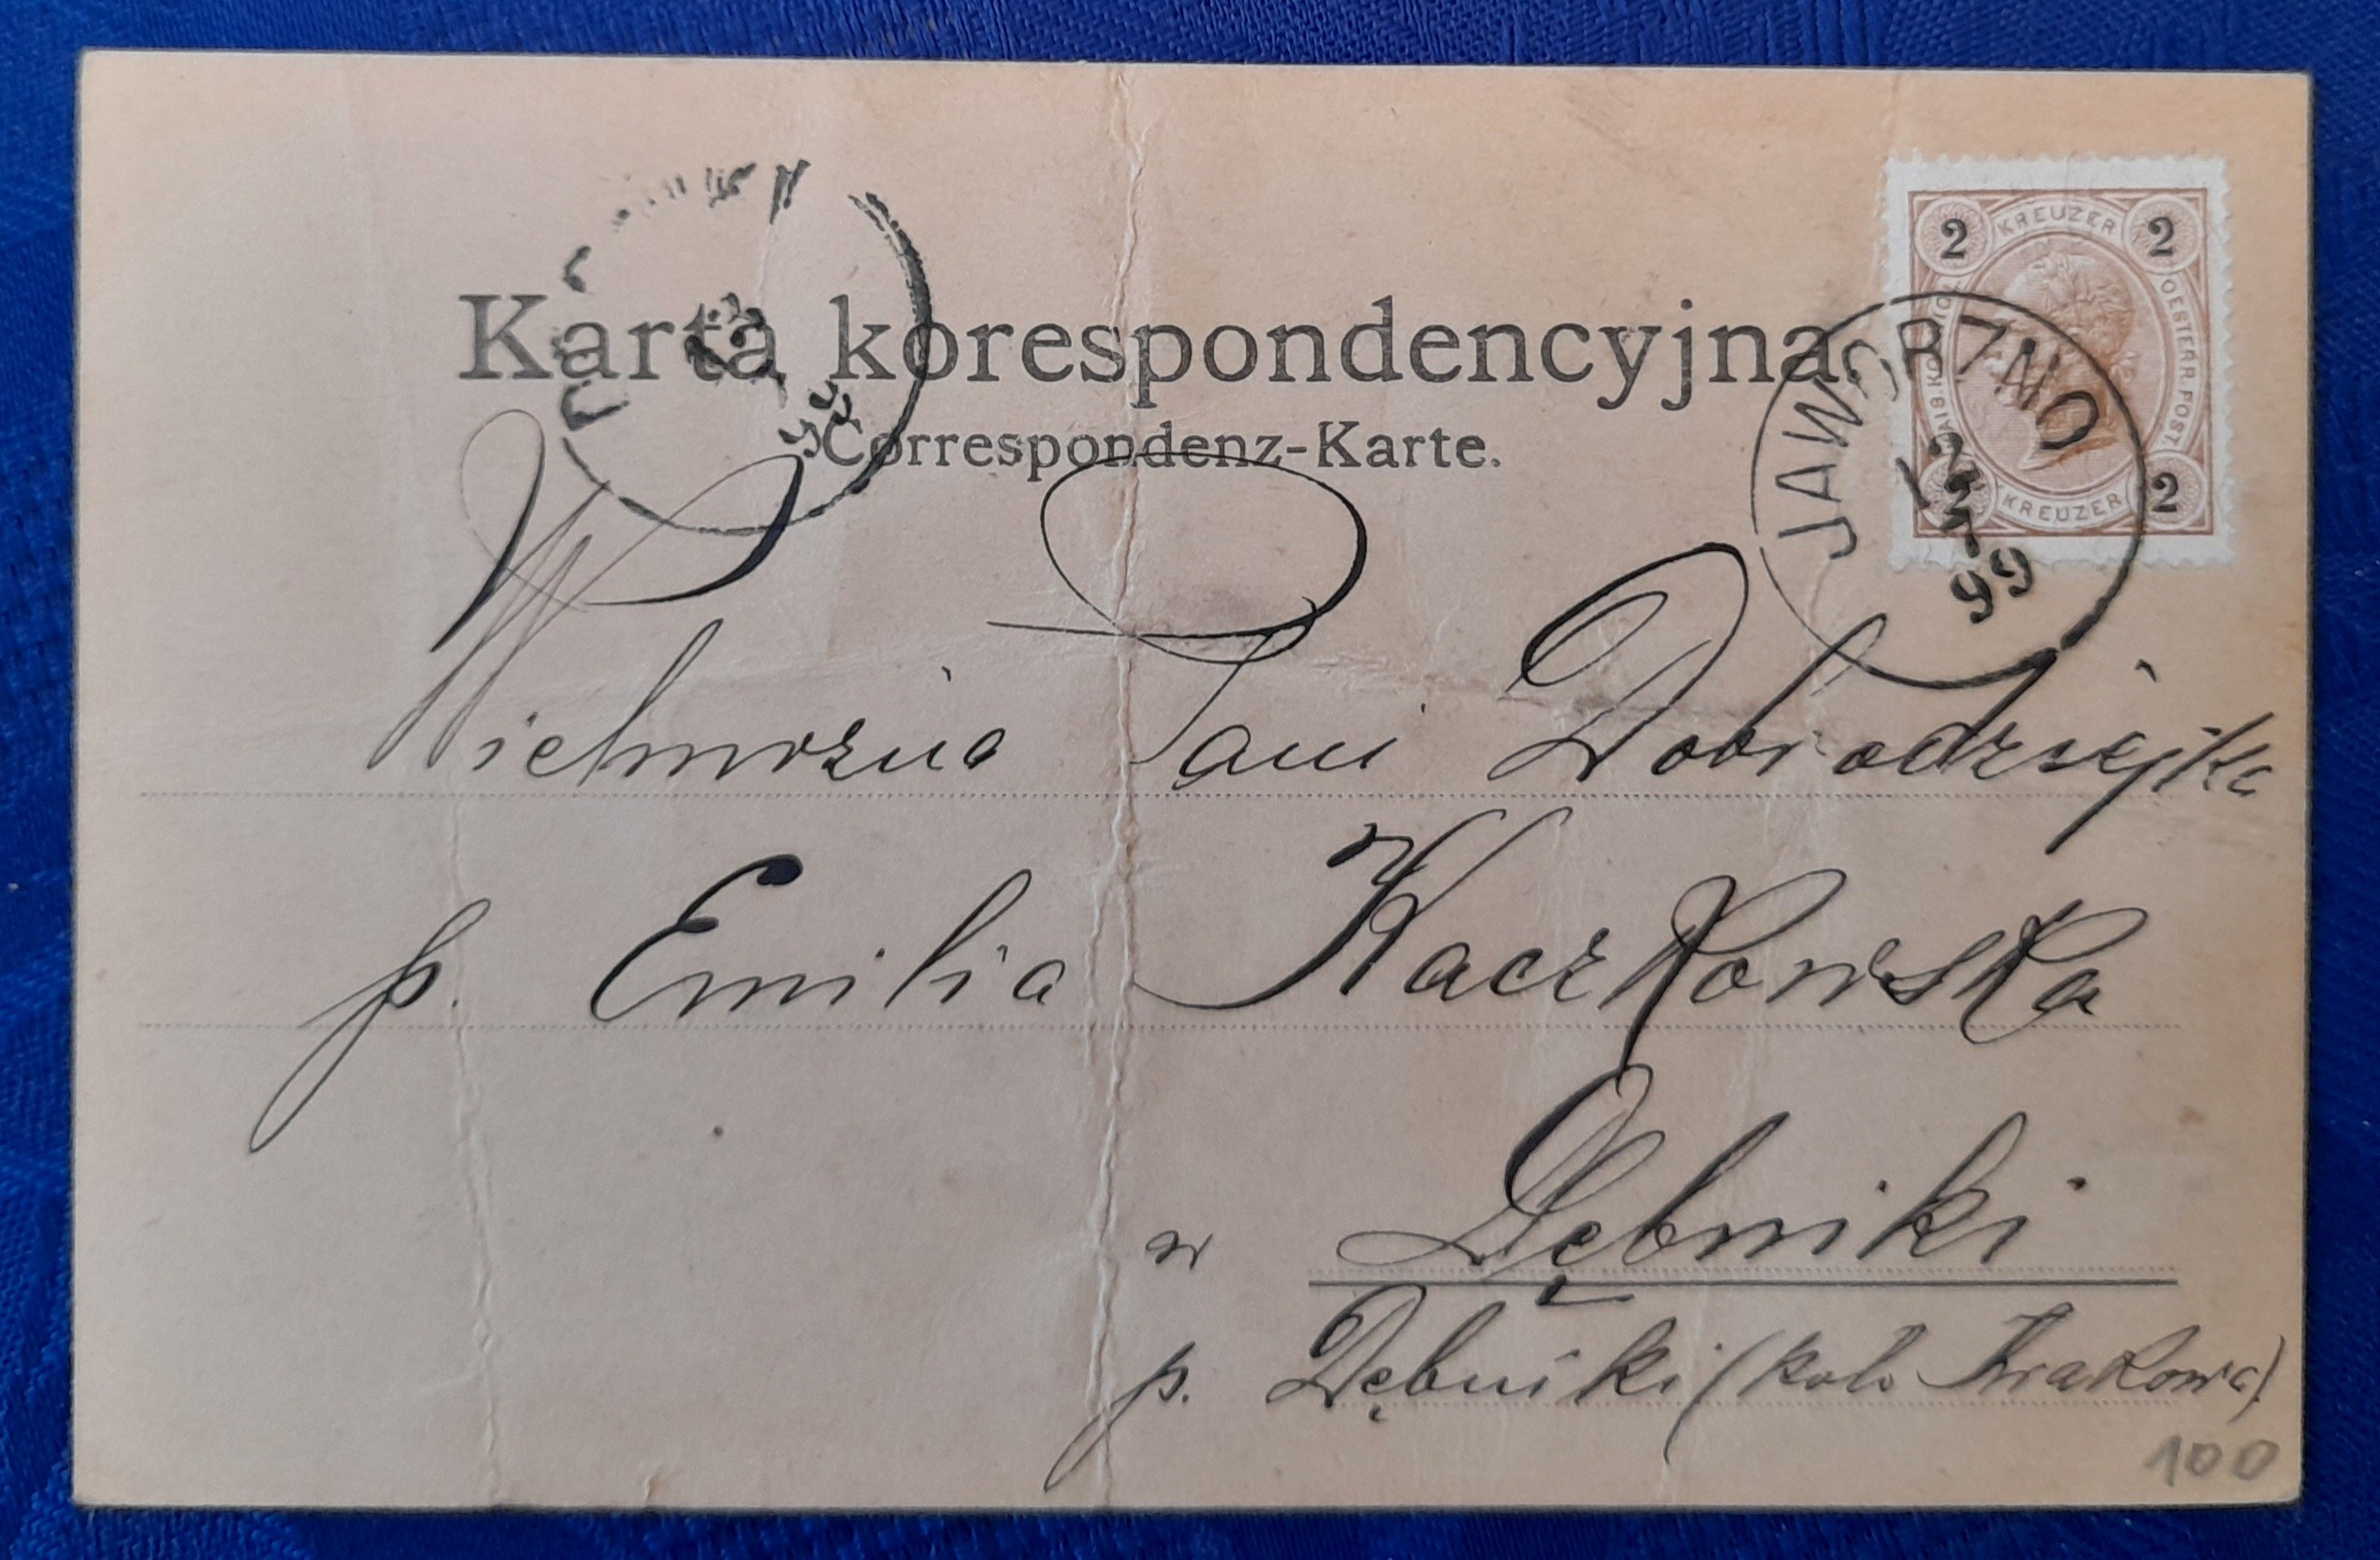 Karta korespondencyjna.
Correspondenz-Karte.
2 KREUZER 2
OESTERR. POST.
2 KREUZER 2
JAWORZNO
99
Wielmożna Pani Dobrodziejka
p. Emilia Kaczkowska
w Dębniki
p. Dębniki (koło Krakowa)
100